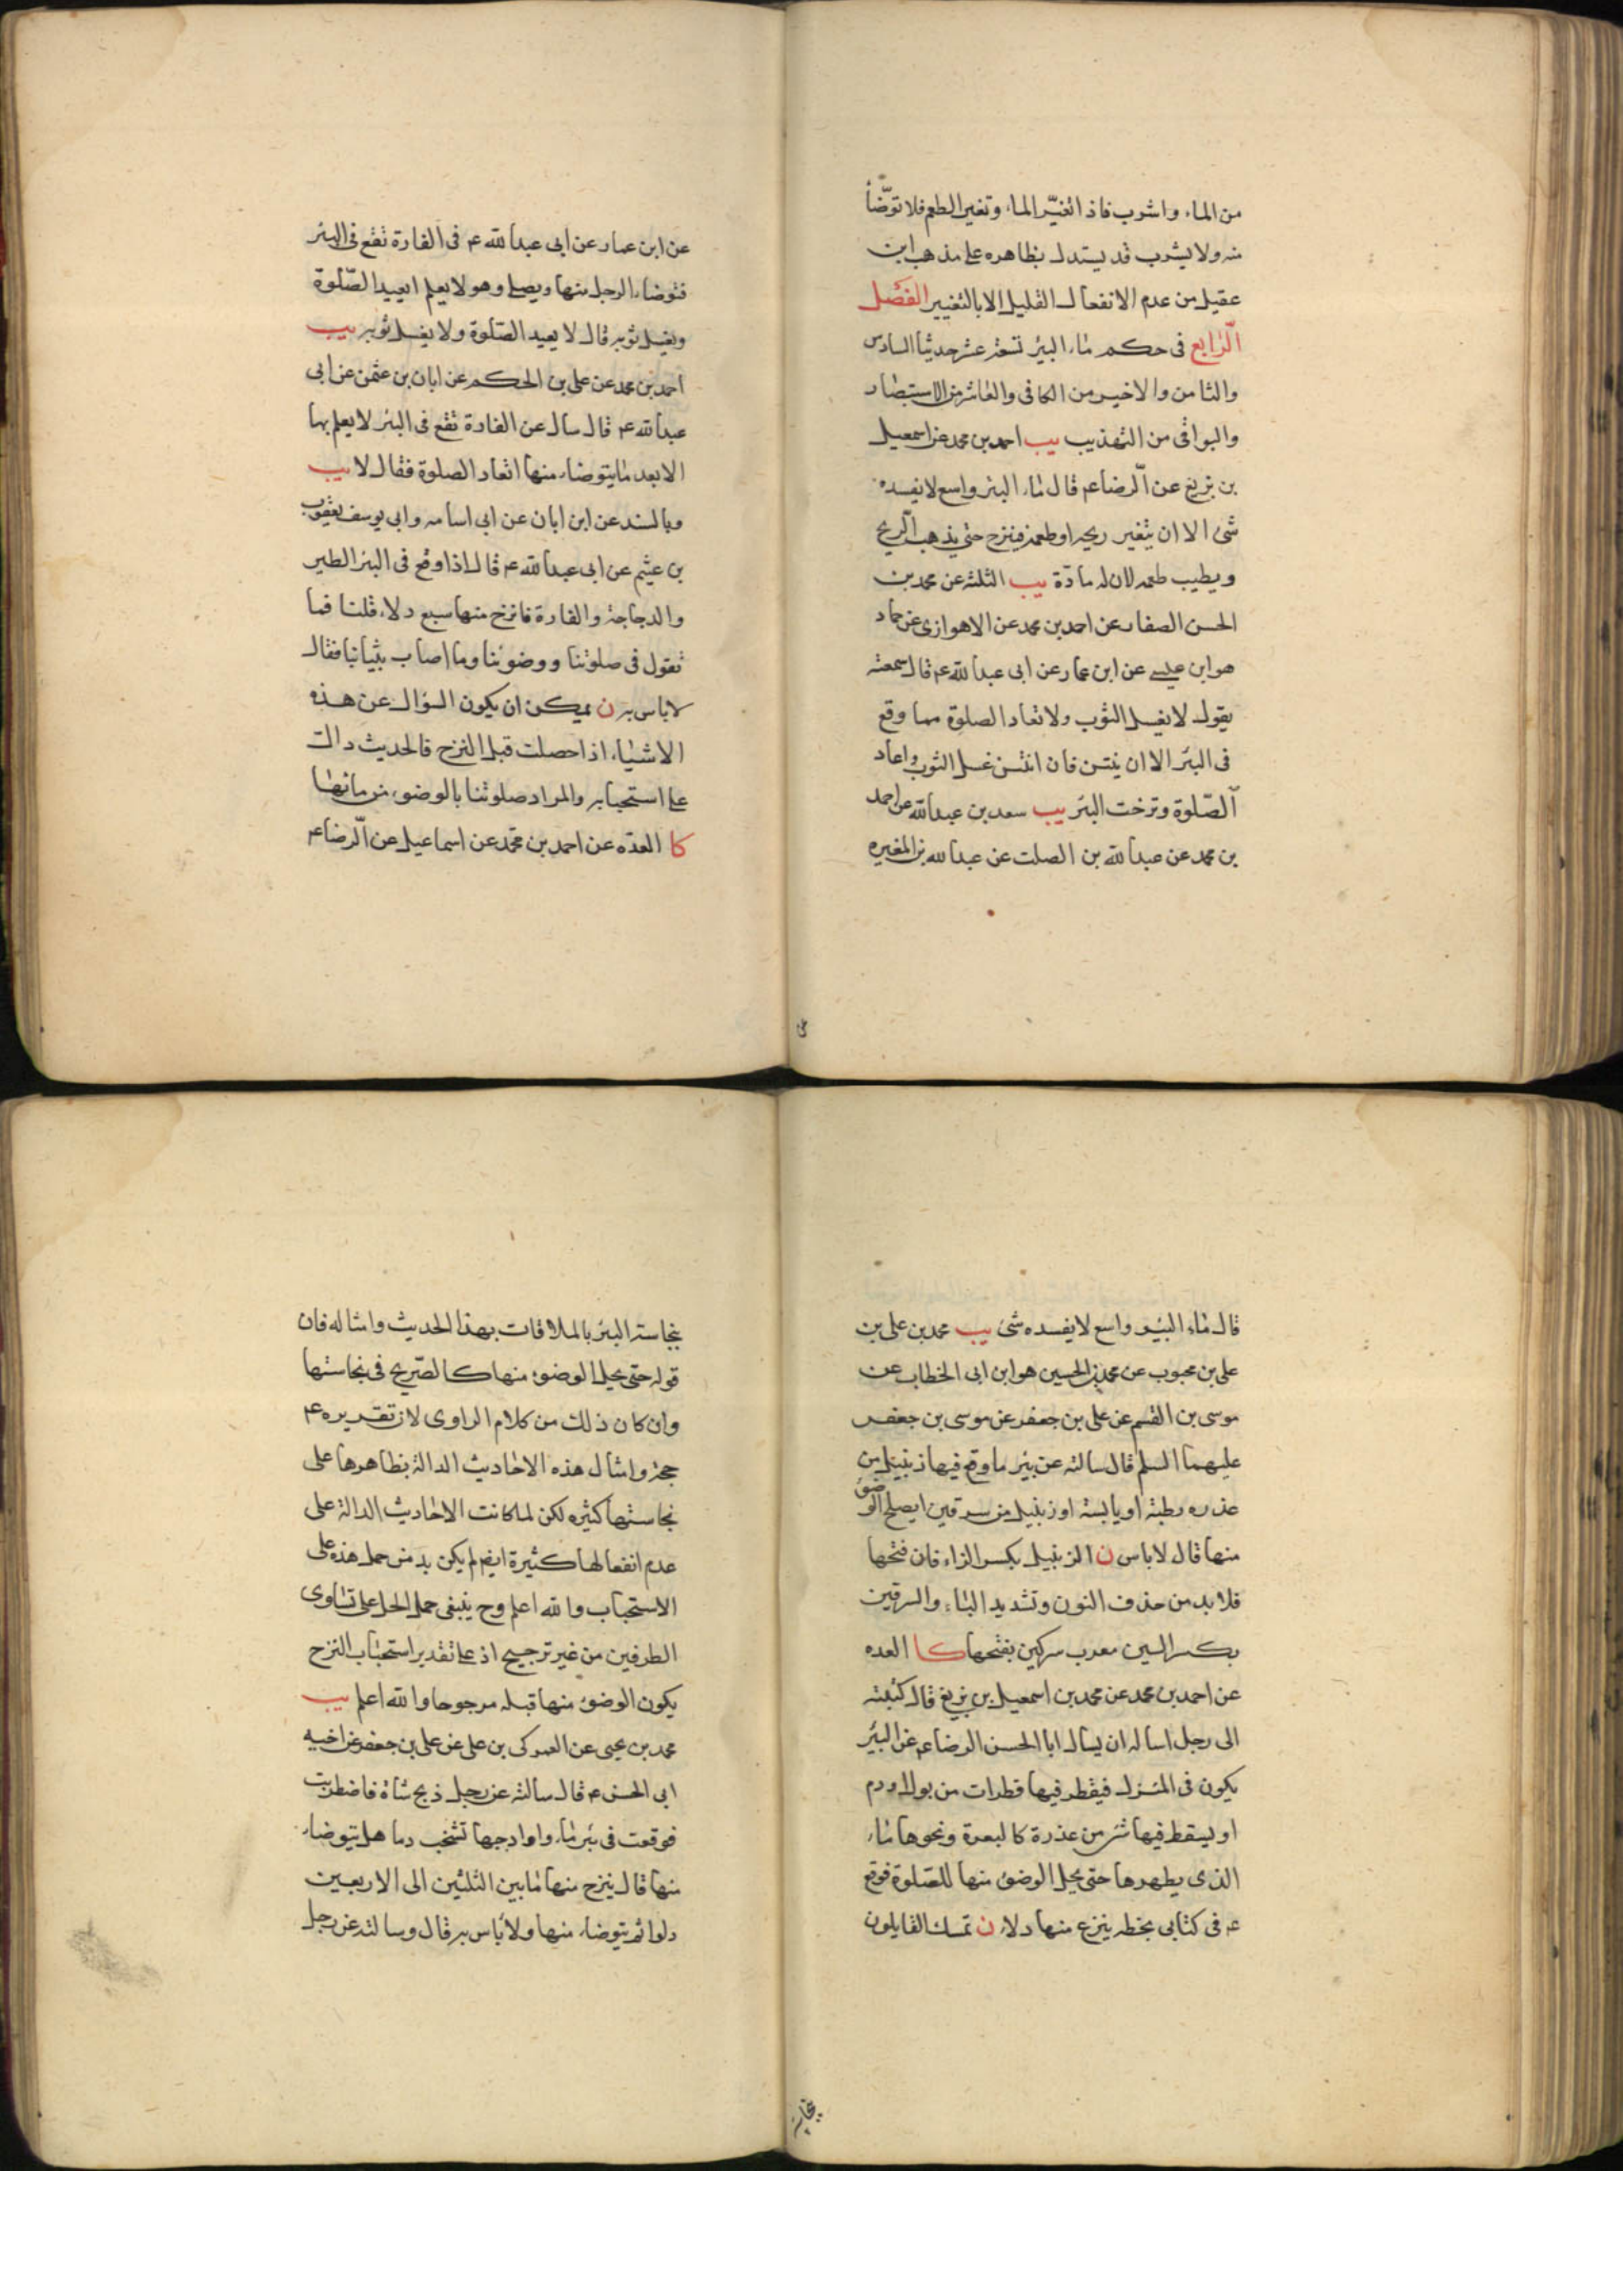 من الماء واشرب فاذا تغيّر الماء وتغير الطعم فلا توضّأ
منه ولا يشرب قد يستدل بظاهره على مذهب ابن
عقيل من عدم الانفعال القليل الا بالتغيير الفصل
الرّابع فى حكم ماء البئر تسعة عشر حديثا السادس
والثامن والاخير من الكافى والعاشر من الاستبصار
والبواقى من التهذيب يب احمد بن محمد عن اسمعيل
بن بزيع عن الرّضا ع قال ماء البئر واسع لا يفسده
شئ الا ان يتغير ريحه او طعمه فينزح حتى يذهب الرّيح
ويطيب طعمه لان له مادّة يب الثلثه عن محمد بن
الحسن الصفار عن احمد بن محمد عن الاهوازى عن حماد
هو ابن عيسى عن ابن عمار عن ابى عبدالله ع قال سمعته
يقول لا يغسل الثوب ولا تعاد الصلوة مما وقع
فى البئر الا ان ينتن فان انتن غسل الثوب واعاد
الصّلوة ونزحت البئر يب سعد بن عبدالله عن احمد
بن محمد عن عبدالله بن الصلت عن عبدالله بن المغيره
عن ابن عمار عن ابى عبدالله ع فى الفارة تقع فى البئر
فتوضاء الرجل منها ويصلى وهو لا يعلم ايعيد الصّلوة
ويغسل ثوبه قال لا يعيد الصّلوة ولا يغسل ثوبه يب
احمد بن محمد عن على بن الحكم عن ابان بن عثمن عن ابى
عبدالله ع قال سال عن الفارة تقع فى البئر لا يعلم بها
الا بعد ما يتوضاء منها اتعاد الصلوة فقال لا يب
وبالسند عن ابن ابان عن ابى اسامه وابى يوسف يعقوب
بن عثيم عن ابى عبدالله ع قال اذا وقع فى البئر الطير
والدجاجة والفارة فانزح منها سبع دلاء قلنا فما
تقول فى صلوتنا ووضوئنا وما اصاب ثيابنا فقال
لا باس به ن يمكن ان يكون السؤال عن هذه
الاشياء اذا حصلت قبل النزح فالحديث دالت
على استحبابه والمراد صلوتنا بالوضوء من مائها
كا العده عن احمد بن محمّد عن اسماعيل عن الرّضا ع
قال ماء البئر واسع لا يفسده شئ يب محمد بن على بن
على بن محبوب عن محمد بن الحسين هو ابن ابى الخطاب عن
موسى بن القسم عن على بن جعفر عن موسى بن جعفر
عليهما السلم قال سالته عن بئر ما وقع فيها زنبيل من
عذره رطبة او يابسة او زنبيل من سرقين ايصلح الوضوء
منها قال لا باس ن الزنبيل بكسر الزاء فان فتحها
فلا بد من حذف النون وتشديد الباء والسرقين
بكسر السين معرب سركين بفتحها كا العده
عن احمد بن محمد عن محمد بن اسمعيل بن بزيع قال كتبت
الى رجل اساله ان يسال ابا الحسن الرضا ع عن البئر
يكون فى المنزل فيقطر فيها قطرات من بول او دم
او يسقط فيها شئ من عذرة كالبعرة ونحوها ما
الذى يطهرها حتى يحل الوضوء منها للصّلوة فوقع
ع فى كتابى بخطه ينزع منها دلاء ن تمسك القايلون
بنجاسة
بنجاسة البئر بالملاقات بهذا الحديث وامثاله فان
قوله حتى يحل الوضوء منها كالصّريح فى نجاستها
وان كان ذلك من كلام الراوى لان تقريره ع
حجة وامثال هذه الاحاديث الدالة بظاهرها على
نجاستها كثيره لكن لما كانت الاحاديث الدالة على
عدم انفعالها كثيرة ايضا لم يكن بد من حمل هذه على
الاستحباب والله اعلم وح ينبغى حمل الحل على تساوى
الطرفين من غير ترجيح اذ على تقدير استحباب النزح
يكون الوضوء منها قبله مرجوحا والله اعلم يب
محمد بن يحيى عن العمركى بن على عن على بن جعفر عن اخيه
ابى الحسن ع قال سالته عن رجل ذبح شاة فاضطربت
فوقعت فى بئر ماء واوادجها تشخب دما هل يتوضاء
منها قال ينزح منها ما بين الثلثين الى الاربعين
دلوا ثم يتوضاء منها ولا باس به قال وسالته عن رجل